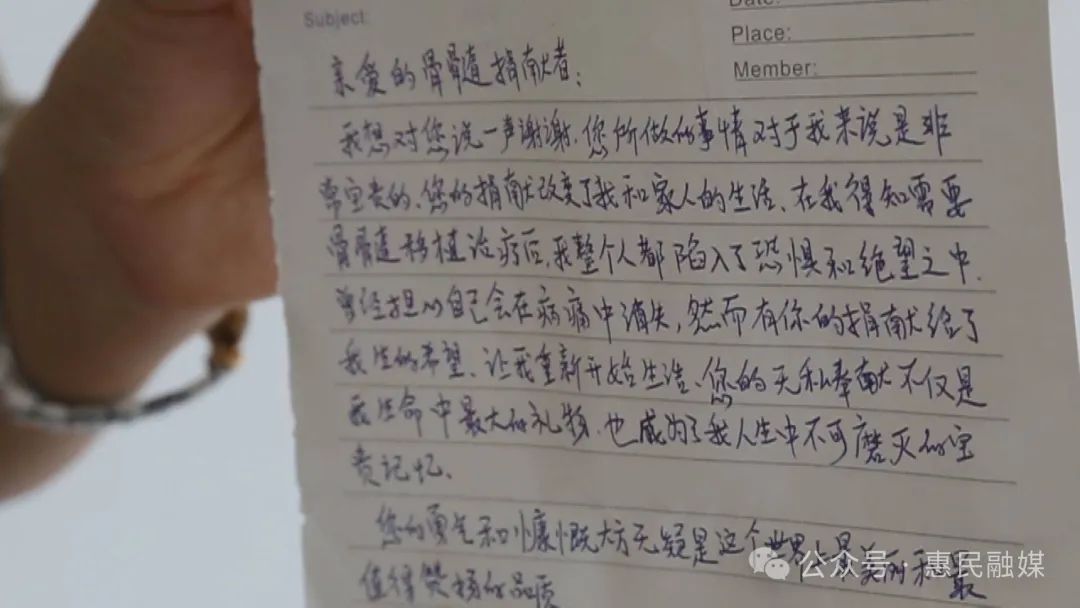 Subject:
Date:
Place:
Member:
亲爱的骨髓捐献者：
我想对您说一声谢谢.您所做的事情对于我来说是非
常宝贵的、您的捐献改变了我和家人的生活、在我得知需要
骨髓移植治疗后,我整个人都陷入了恐惧和绝望之中.
曾经担心自己会在病痛中消失,然而有你的捐献给了
我生的希望、让我重新开始生活、您的无私奉献不仅是
我生命中最大的礼物.也成为了我人生中不可磨灭的宝
贵记忆、
您的勇气和慷慨大方无疑是这个世界上最美丽和最
值得赞扬的品质
公众号·惠民融媒